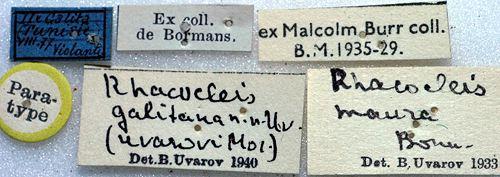 Is. Galita
(Tunisie)
VIII.77
Violante
Ex coll.
de Bormans.
ex Malcolm Burr coll.
B.M.1935-29.
Para-
type
Rhacocleis
galitana n.n. Uv.
(uvarovi Mor.)
Det. B. Uvarov 1940
Rhacocleis
maura
Bonn.
Det. B. Uvarov 1933